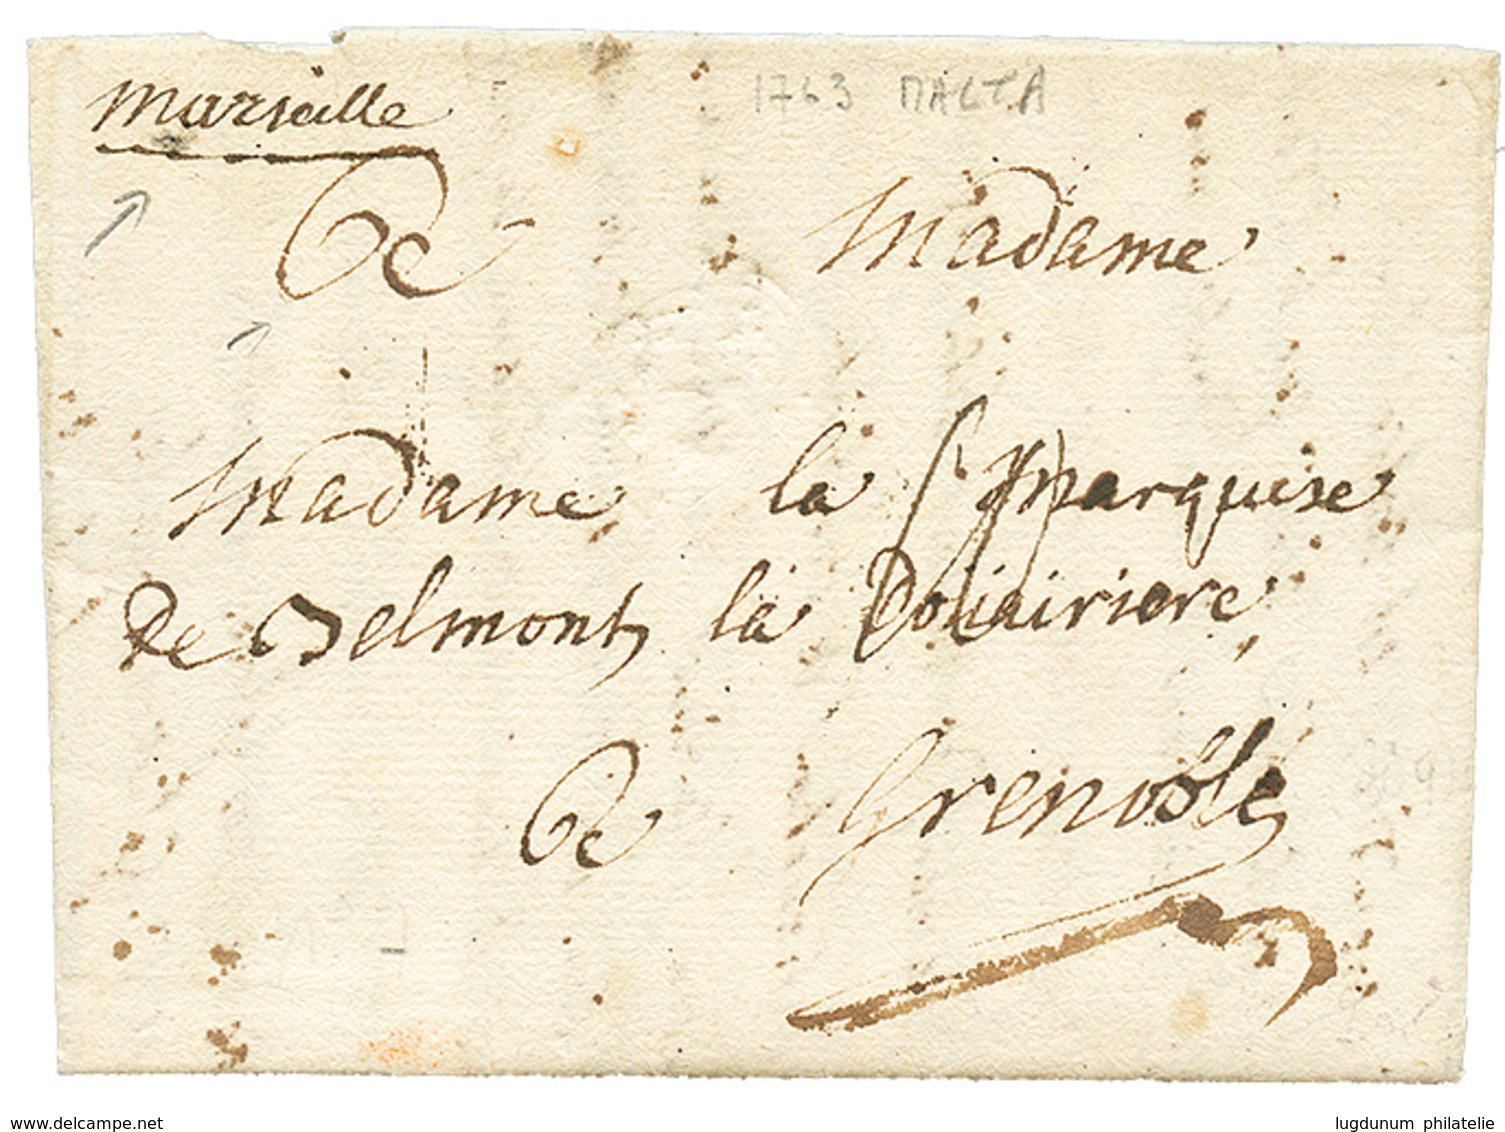 1763 MALTA
Marseille
A Madame
Madame la Marquise
De Belmont la Doüairiere
A Grenoble
www.delcampe.net
lugdunum philatelie